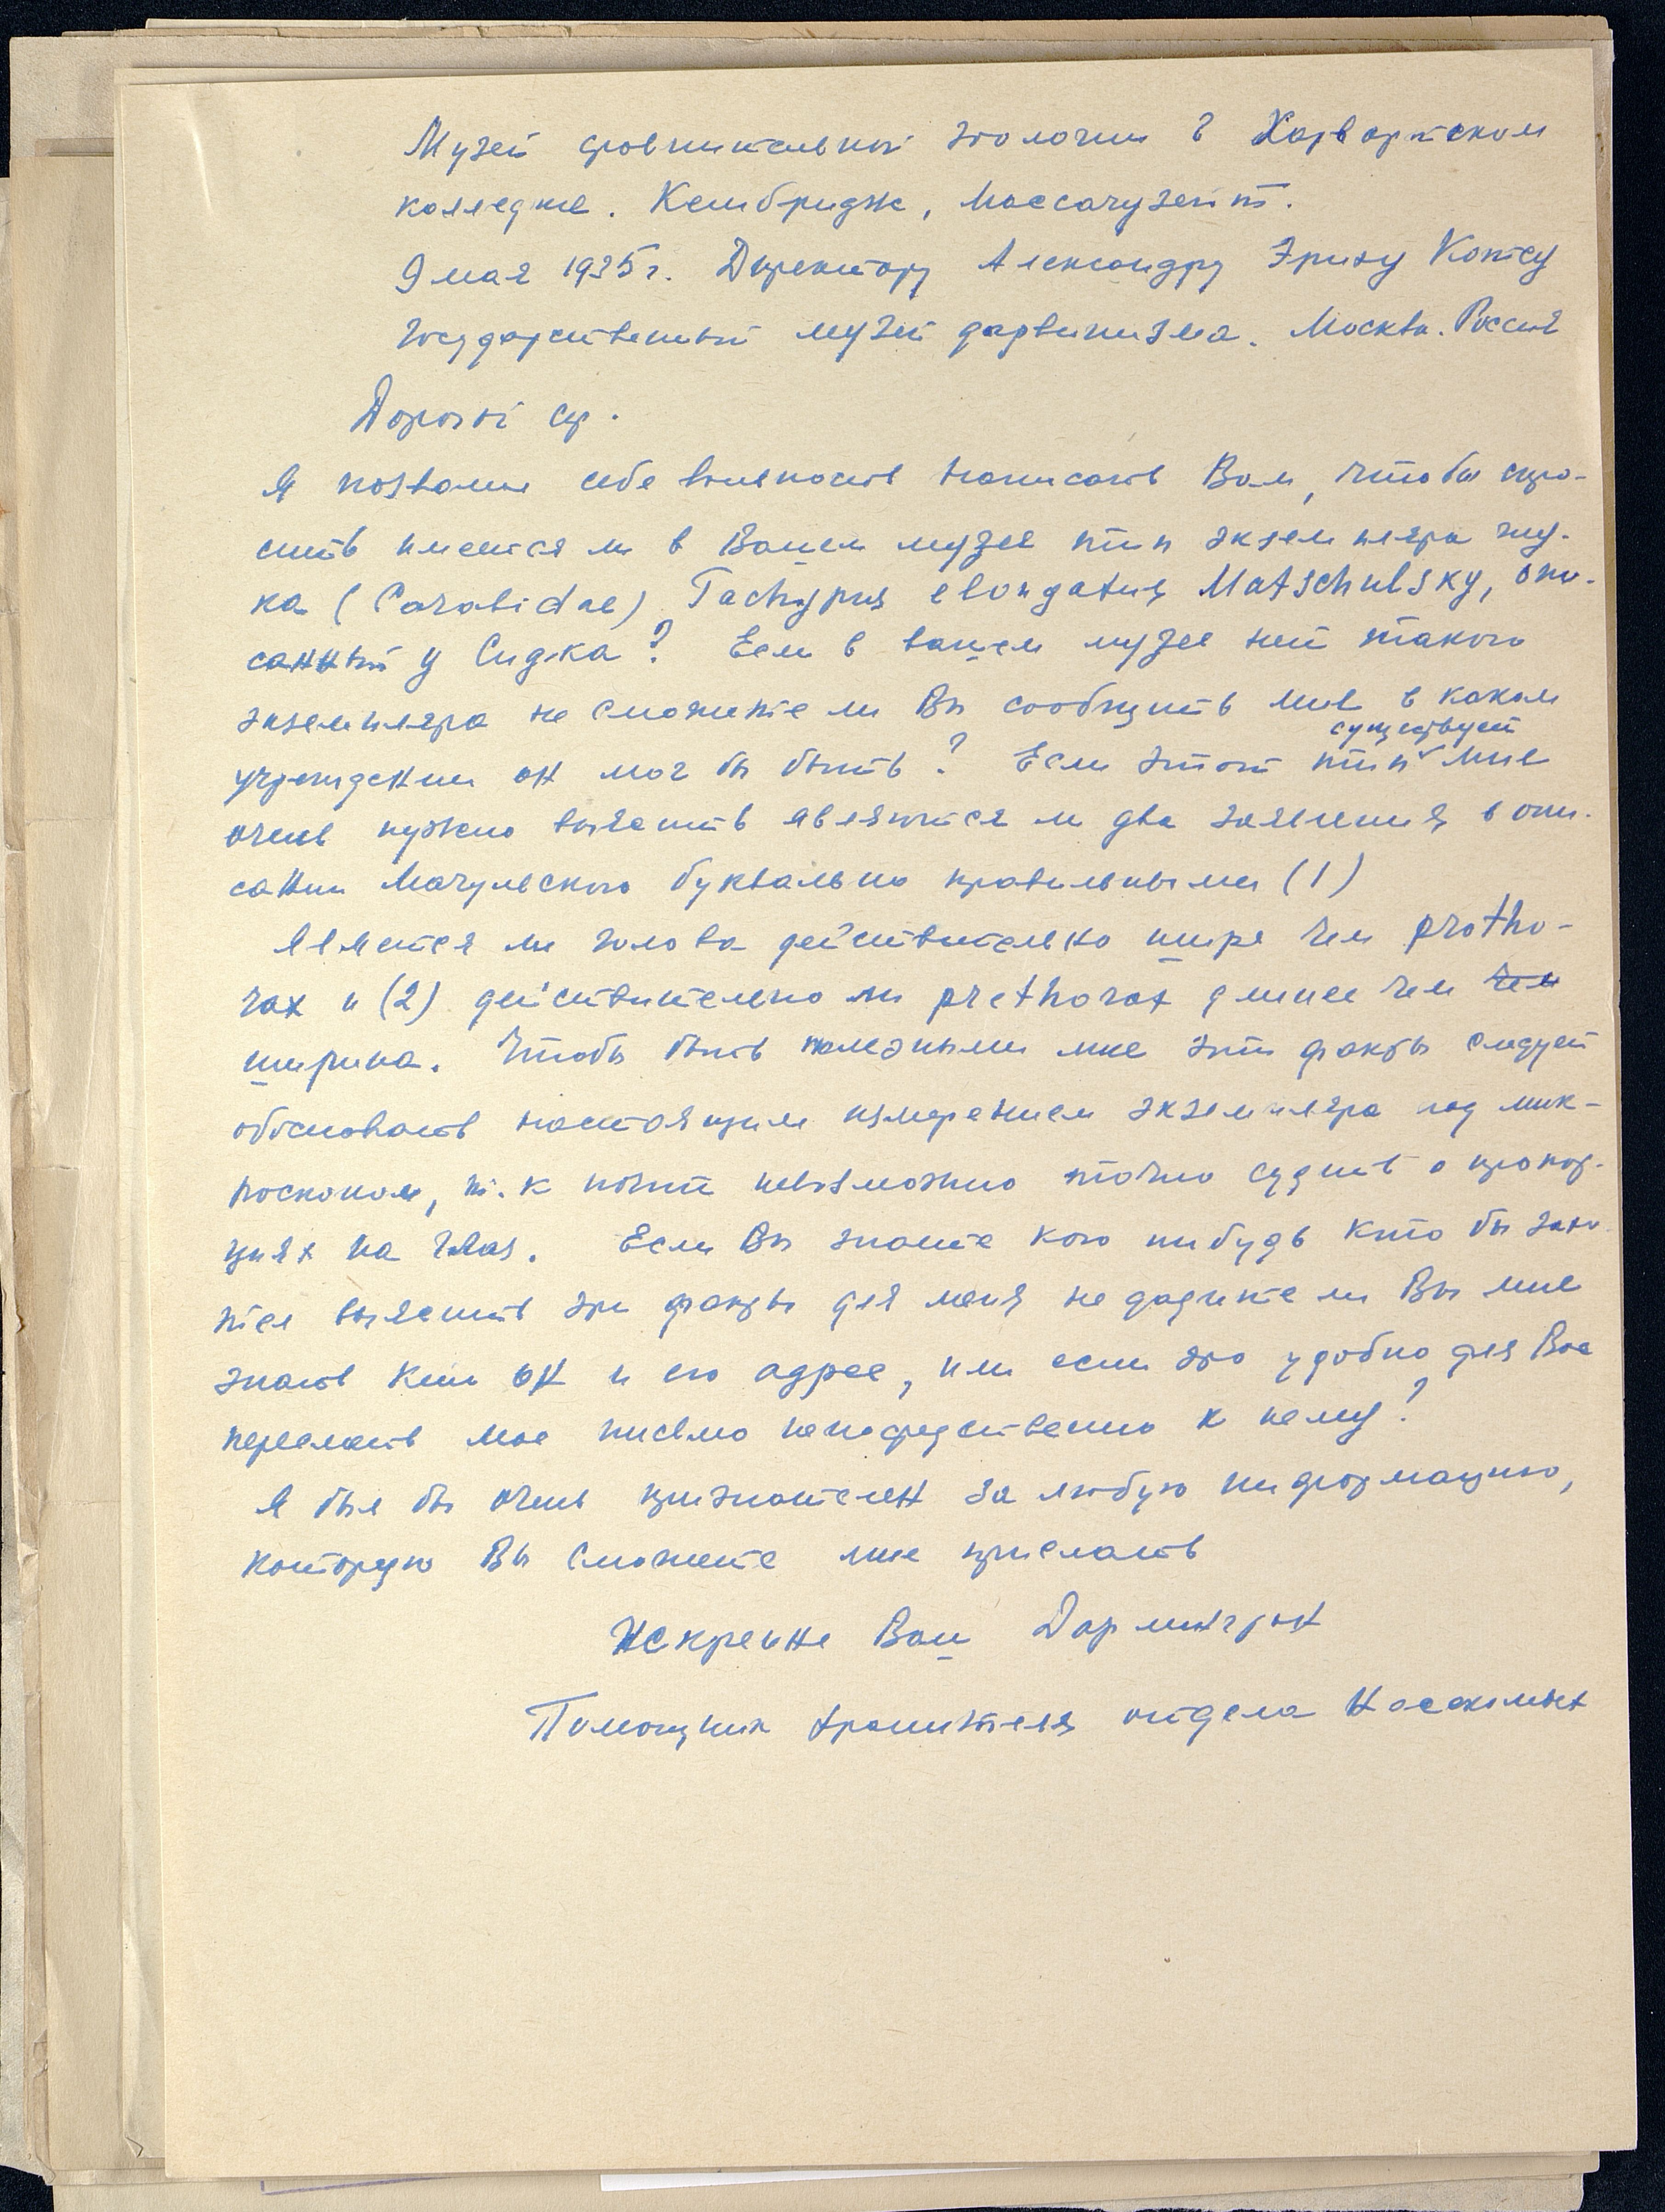 Музей сравнительной зоологии в Харвартском
колледже. Кембридж, Массачузейт.
9 мая 1935 г. Директору Александру Эриху Котсу
Государственный музей дарвинизма. Москва. Россия
Дорогой сэр.
Я позволил себе вольность написать Вам, чтобы спро-
сить имеется ли в Вашем музее тип экземпляра жу-
ка (Carabidae) Tachypus elongatus Matschulsky, опи-
санный у Сидка? Если в вашем музее нет такого
экземпляра не сможете ли Вы сообщить мне в каком
учреждении он мог бы быть? Если этот тип существует мне
очень нужно выяснить являются ли два заявления в опи-
сании Мачульского буквально правильными (1)
Является ли голова действительно шире чем protho-
rax и (2) действительно ли prothorax длинее чем чем
ширина. Чтобы быть полезными мне эти факты следует
обосновать настоящим измерением экземпляра под мик-
роскопом, т.к почти невозможно точно судить о пропор-
циях на глаз. Если Вы знаете кого нибудь кто бы захо
тел выяснить эти факты для меня не дадите ли Вы мне
знать кто он и его адрес, или если это удобно для Вас
переслать мое письмо непосредственно к нему?
Я был бы очень признателен за любую информацию,
которую Вы сможете мне прислать
Искренне Ваш Дарлингтон
Помощник хранителя отдела Насекомых